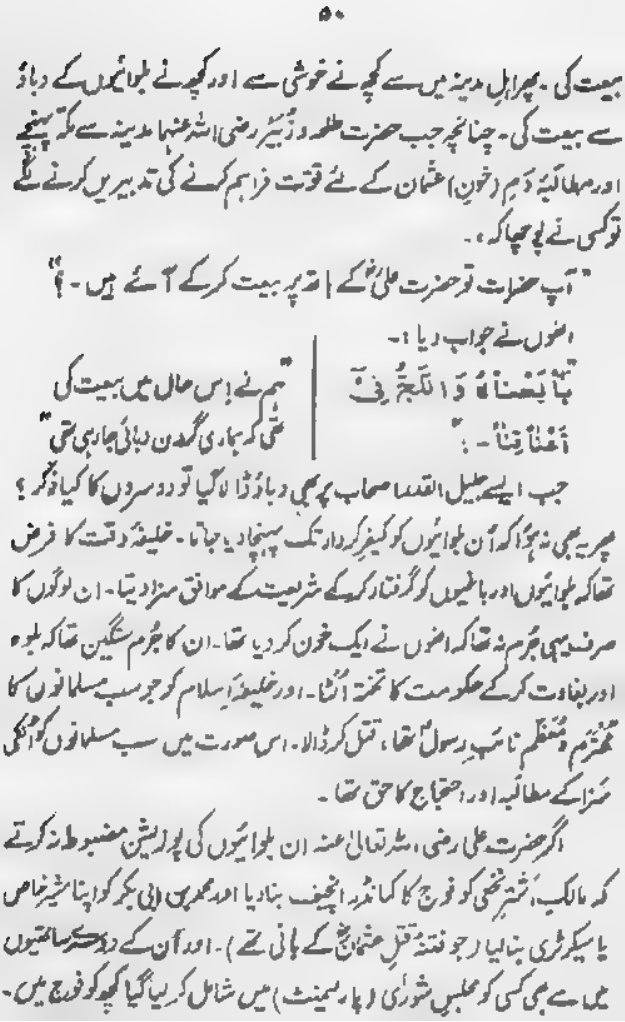 ۵۰
بیعت کی ۔ پھر اہلِ مدینہ میں سے کچھ نے خوشی سے اور کچھ نے بلوائیوں کے دباؤ
سے بیعت کی ۔ چنانچہ جب حضرت طلحہ و زُبَیر رضی اللہ عنہما مدینہ سے مکّہ پہنچے
اور مطالبۂ دَمِ (خونِ) عثمان کے لئے قوّت فراہم کرنے کی تدبیریں کرنے لگے
تو کسی نے پوچھا کہ :۔
"آپ حضرات تو حضرت علیؓ کے ہاتھ پر بیعت کرکے آئے ہیں ۔ ؟"
انھوں نے جواب دیا :۔
"بَایَعْنَاہُ وَاللَّجُّ فِیْ
اَعْنَاقِنَا ۔:"
"ہم نے اِس حال میں بیعت کی
تھی کہ ہماری گردن دبائی جارہی تھی"
جب ایسے جلیل القدر اصحاب پر بھی دباؤ ڈالا گیا تو دوسروں کا کیا ذکر ؟
پھر یہ بھی نہ ہؤا کہ اُن بلوائیوں کو کیفرِ کردار تک پہنچا دیا جاتا ۔ خلیفۂ وقت کا فرض
تھا کہ بلوائیوں اور باغیوں کو گرفتار کرکے شریعت کے موافق سزا دیتا ۔ ان لوگوں کا
صرف یہی جُرم نہ تھا کہ انھوں نے ایک خون کر دیا تھا ۔ ان کا جُرم سنگین تھا کہ بلوہ
اور بغاوت کرکے حکومت کا تختہ اُلٹا ۔ اور خلیفۂ اِسلام کو جو سب مسلمانوں کا
مُحْتَرَم و مُعَظَّم نائبِ رسولؐ تھا ، قتل کر ڈالا ۔ اس صورت میں سب مسلمانوں کو اُنکی
سَزا کے مطالبہ اور احتجاج کا حق تھا ۔
اگر حضرت علی رضی اللہ تعالیٰ عنہ ان بلوائیوں کی پوزیشن مضبوط نہ کرتے
کہ مالک اَشتر نخعی کو فوج کا کمانڈر انچیف بنا دیا اور محمد بن ابی بکر کو اپنا مشیرِ خاص
یا سیکرٹری بنا لیا (جو فتنۂ قتلِ عثمانؓ کے بانی تھے) ۔ اور اُن کے دوسرے ساتھیوں
میں سے بھی کسی کو مجلسِ شورٰی (پارلیمنٹ) میں شامل کر لیا گیا کچھ کو فوج میں ۔